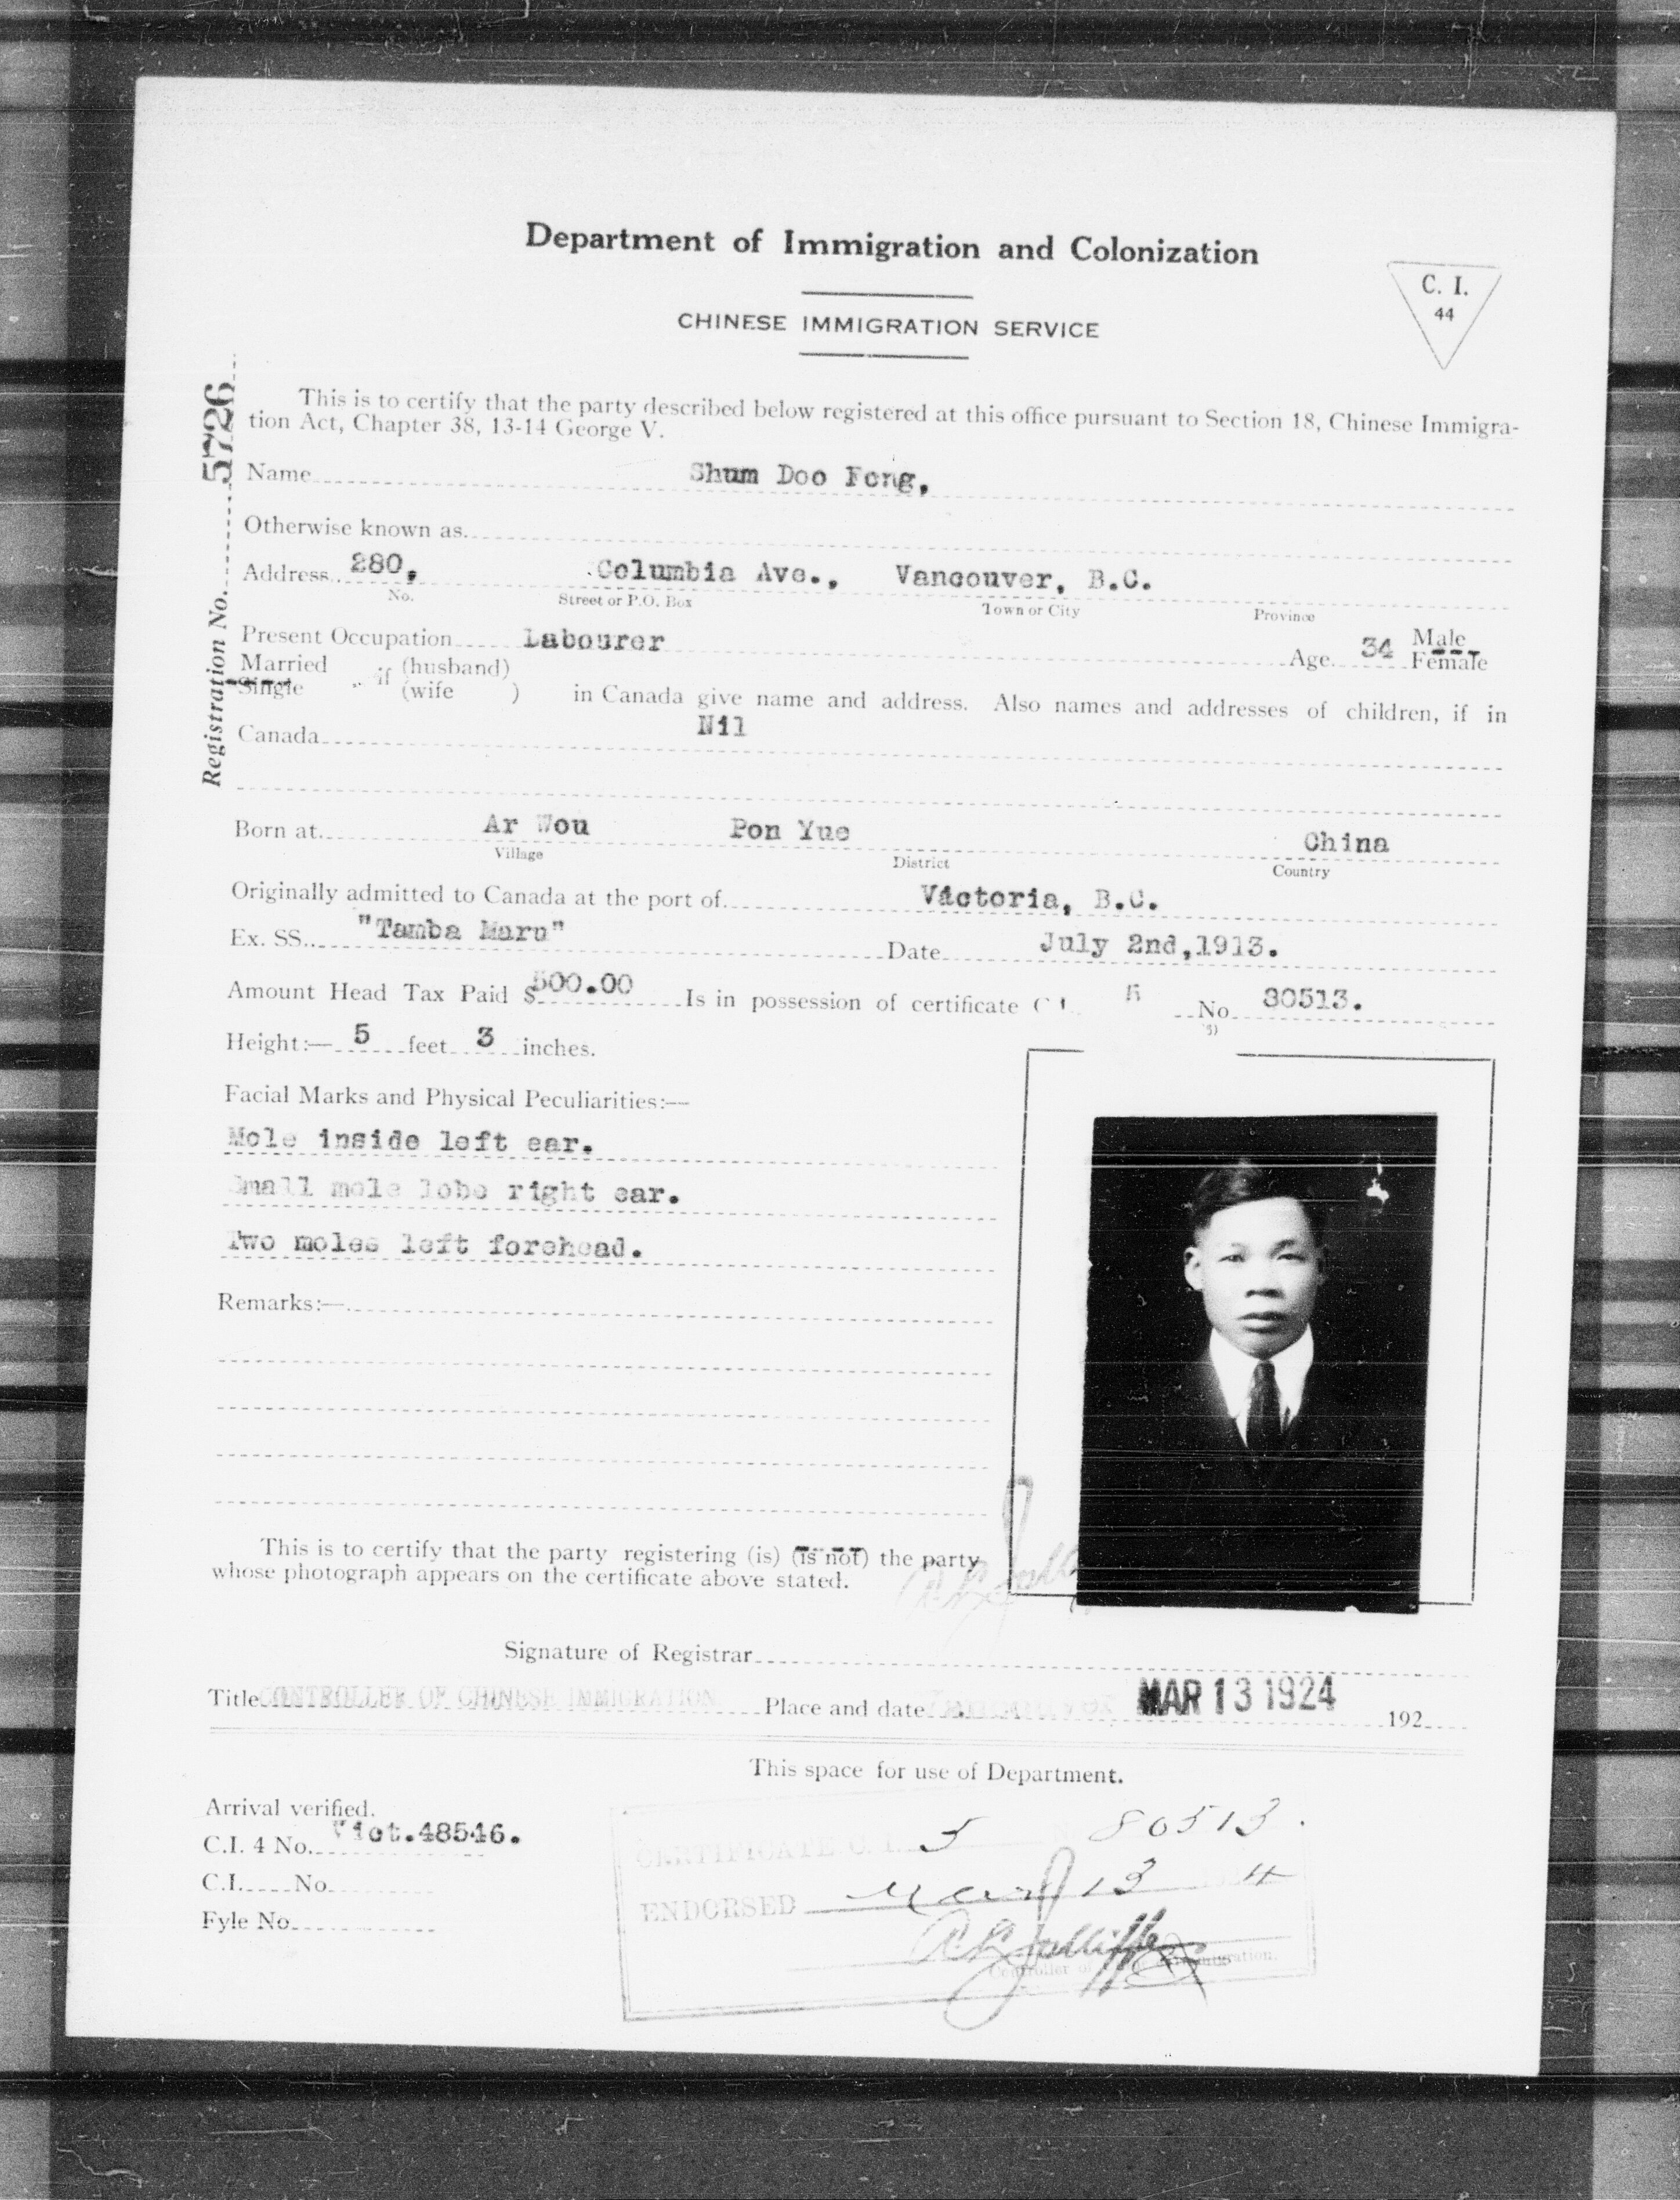 Department of Immigration and Colonization
CHINESE IMMIGRATION SERVICE
C. I.
44
Registration No. 5726
This is to certify that the party described below registered at this office pursuant to Section 18, Chinese Immigra-
tion Act, Chapter 38, 13-14 George V.
Name Shum Doo Fong,
Otherwise known as
Address 280, Columbia Ave., Vancouver, B.C.
No. Street or P.O. Box Town or City Province
Present Occupation Labourer Age 34 Male Female
Married
Single if (husband)
(wife ) in Canada give name and address. Also names and addresses of children, if in
Canada Nil
Born at Ar Wou Pon Yue China
Village District Country
Originally admitted to Canada at the port of Victoria, B.C.
Ex. SS. "Tamba Maru" Date July 2nd, 1913.
Amount Head Tax Paid $500.00 Is in possession of certificate C I. 5 No 80513.
Height:— 5 feet 3 inches.
Facial Marks and Physical Peculiarities:—
Mole inside left ear.
Small mole lobe right ear.
Two moles left forehead.
Remarks:—
This is to certify that the party registering (is) (is not) the party
whose photograph appears on the certificate above stated.
Signature of Registrar
Title CONTROLLER OF CHINESE IMMIGRATION Place and date MAR 13 1924 192
This space for use of Department.
Arrival verified.
C.I. 4 No. Vict.48546.
C.I. No.
Fyle No.
CERTIFICATE C. I. 5 N 80513.
ENDORSED Mar 13 4
Controller of Immigration.